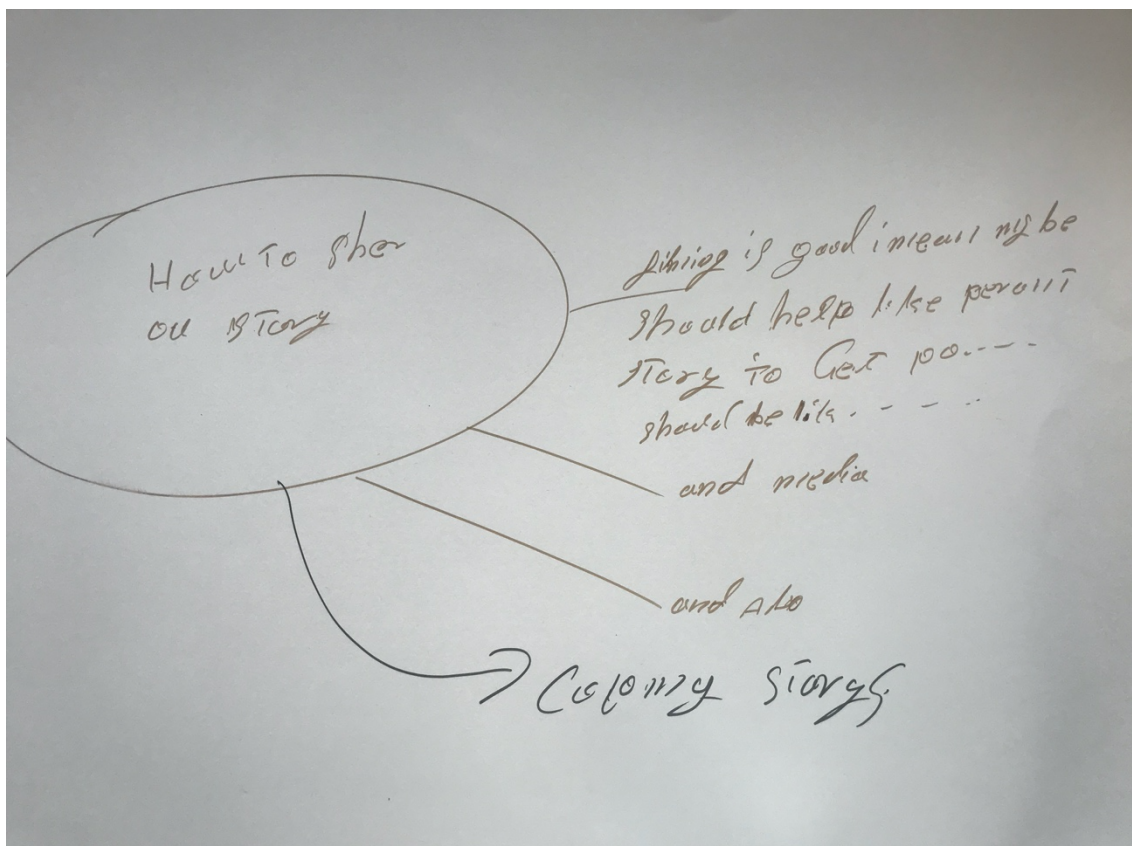 How To Sher
ou story
is good i mean my be
should help like
story to Get po.----
should be lik. - - - ..
and media
and Also
Colony storys